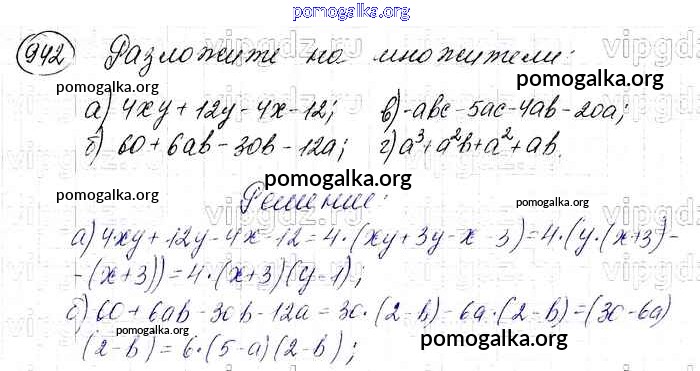 pomogalka.org
942 Разложите на множители:
vipgdz.ru vipgdz.ru vipgdz
pomogalka.org
а) 4xy + 12y - 4x - 12; в) -abc - 5ac - 4ab - 20a;
б) 60 + 6ab - 30b - 12a; г) a³ + a²b + a² + ab.
pomogalka.org pomogalka.org
pomogalka.org pomogalka.org
Решение:
а) 4xy + 12y - 4x - 12 = 4·(xy + 3y - x - 3) = 4·(y·(x+3) -
- (x+3)) = 4·(x+3)(y-1);
pomogalka.org
б) 60 + 6ab - 30b - 12a = 30·(2-b) - 6a·(2-b) = (30-6a)
pomogalka.org
(2-b) = 6·(5-a)(2-b);
pomogalka.org